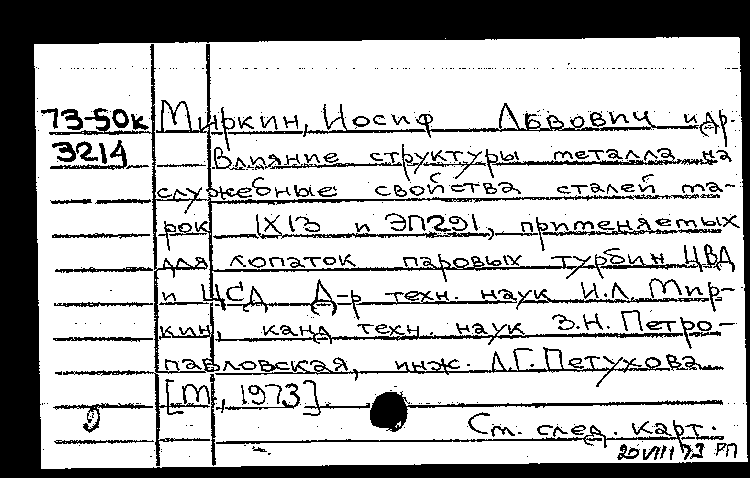 73-50к Миркин, Иосиф Львович и др.
3214 Влияние структуры металла на
служебные свойства сталей ма-
рок 1Х13 и ЭП291, применяемых
для лопаток паровых турбин ЦВД
и ЦСД Д-р техн. наук И.Л. Мир-
кин, канд техн. наук З.Н. Петро-
павловская, инж. Л.Г. Петухова
[М, 1973]
См. след. карт.
20 VIII 73 РП